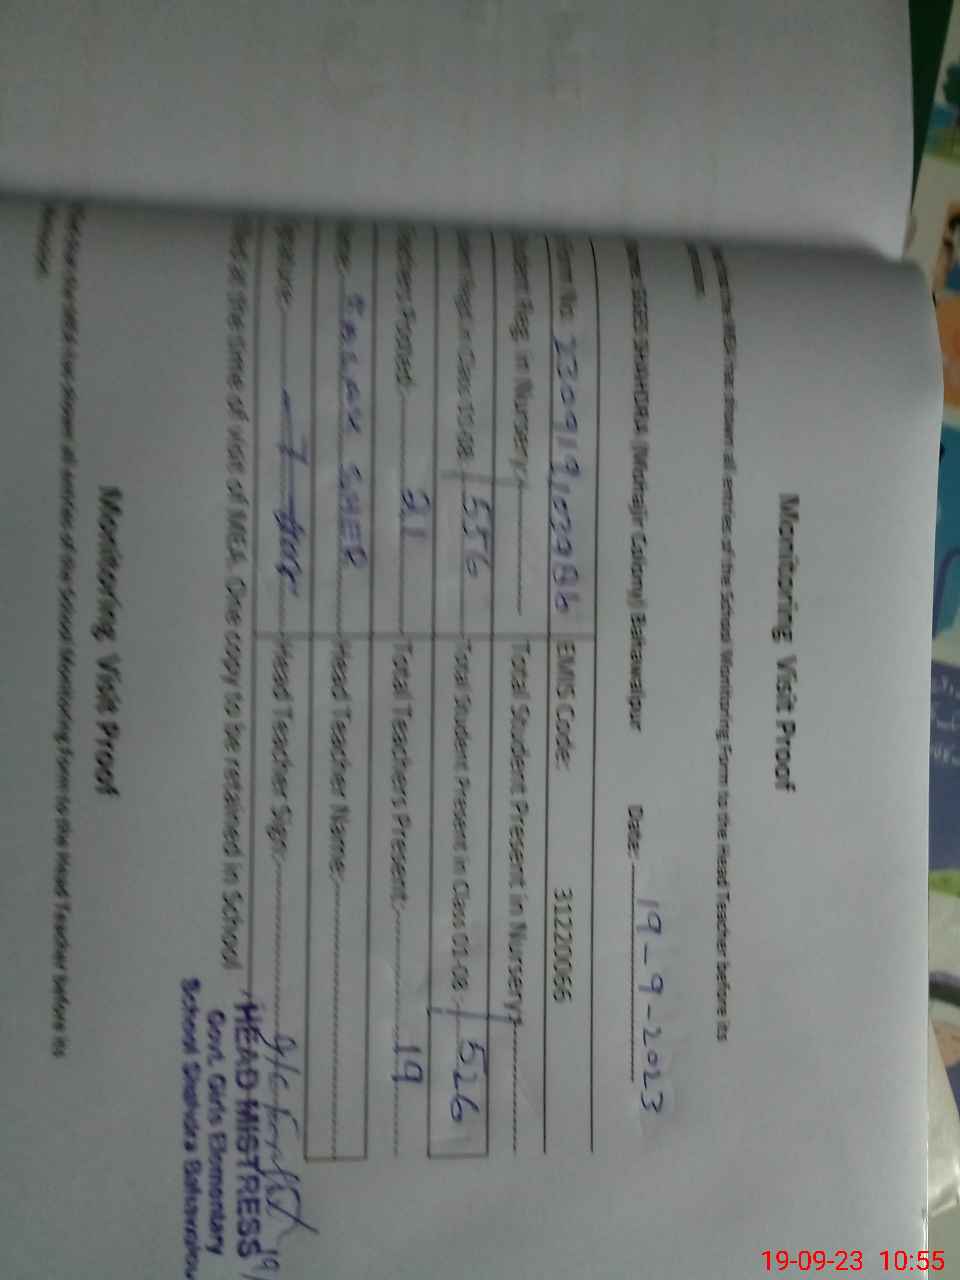 Monitoring Visit Proof
all entries of the School Monitoring Form to the Head Teacher before its
GGES SHAHDRA (Mohajir Colony) Bahawalpur Date: 19-9-2023
Form No: EMIS Code: 31220066
Student Reg. in Nursery: Total Student Present in Nursery:
Reg. in Class 01-08: 556 Total Student Present in Class 01-08: 526
Teachers Posted: 21 Total Teachers Present: 19
SHER Head Teacher Name:
Signature: Head Teacher Sign:
at the time of visit of MEA. One copy to be retained in School
HEAD MISTRESS
Govt. Girls Elementary
School Shahdra Bahawalpur
Monitoring Visit Proof
all entries of the School Monitoring Form to the Head Teacher before its
19-09-23 10:55